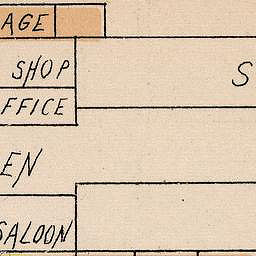 AGE
SHOP S
FFICE
EN
SALOON